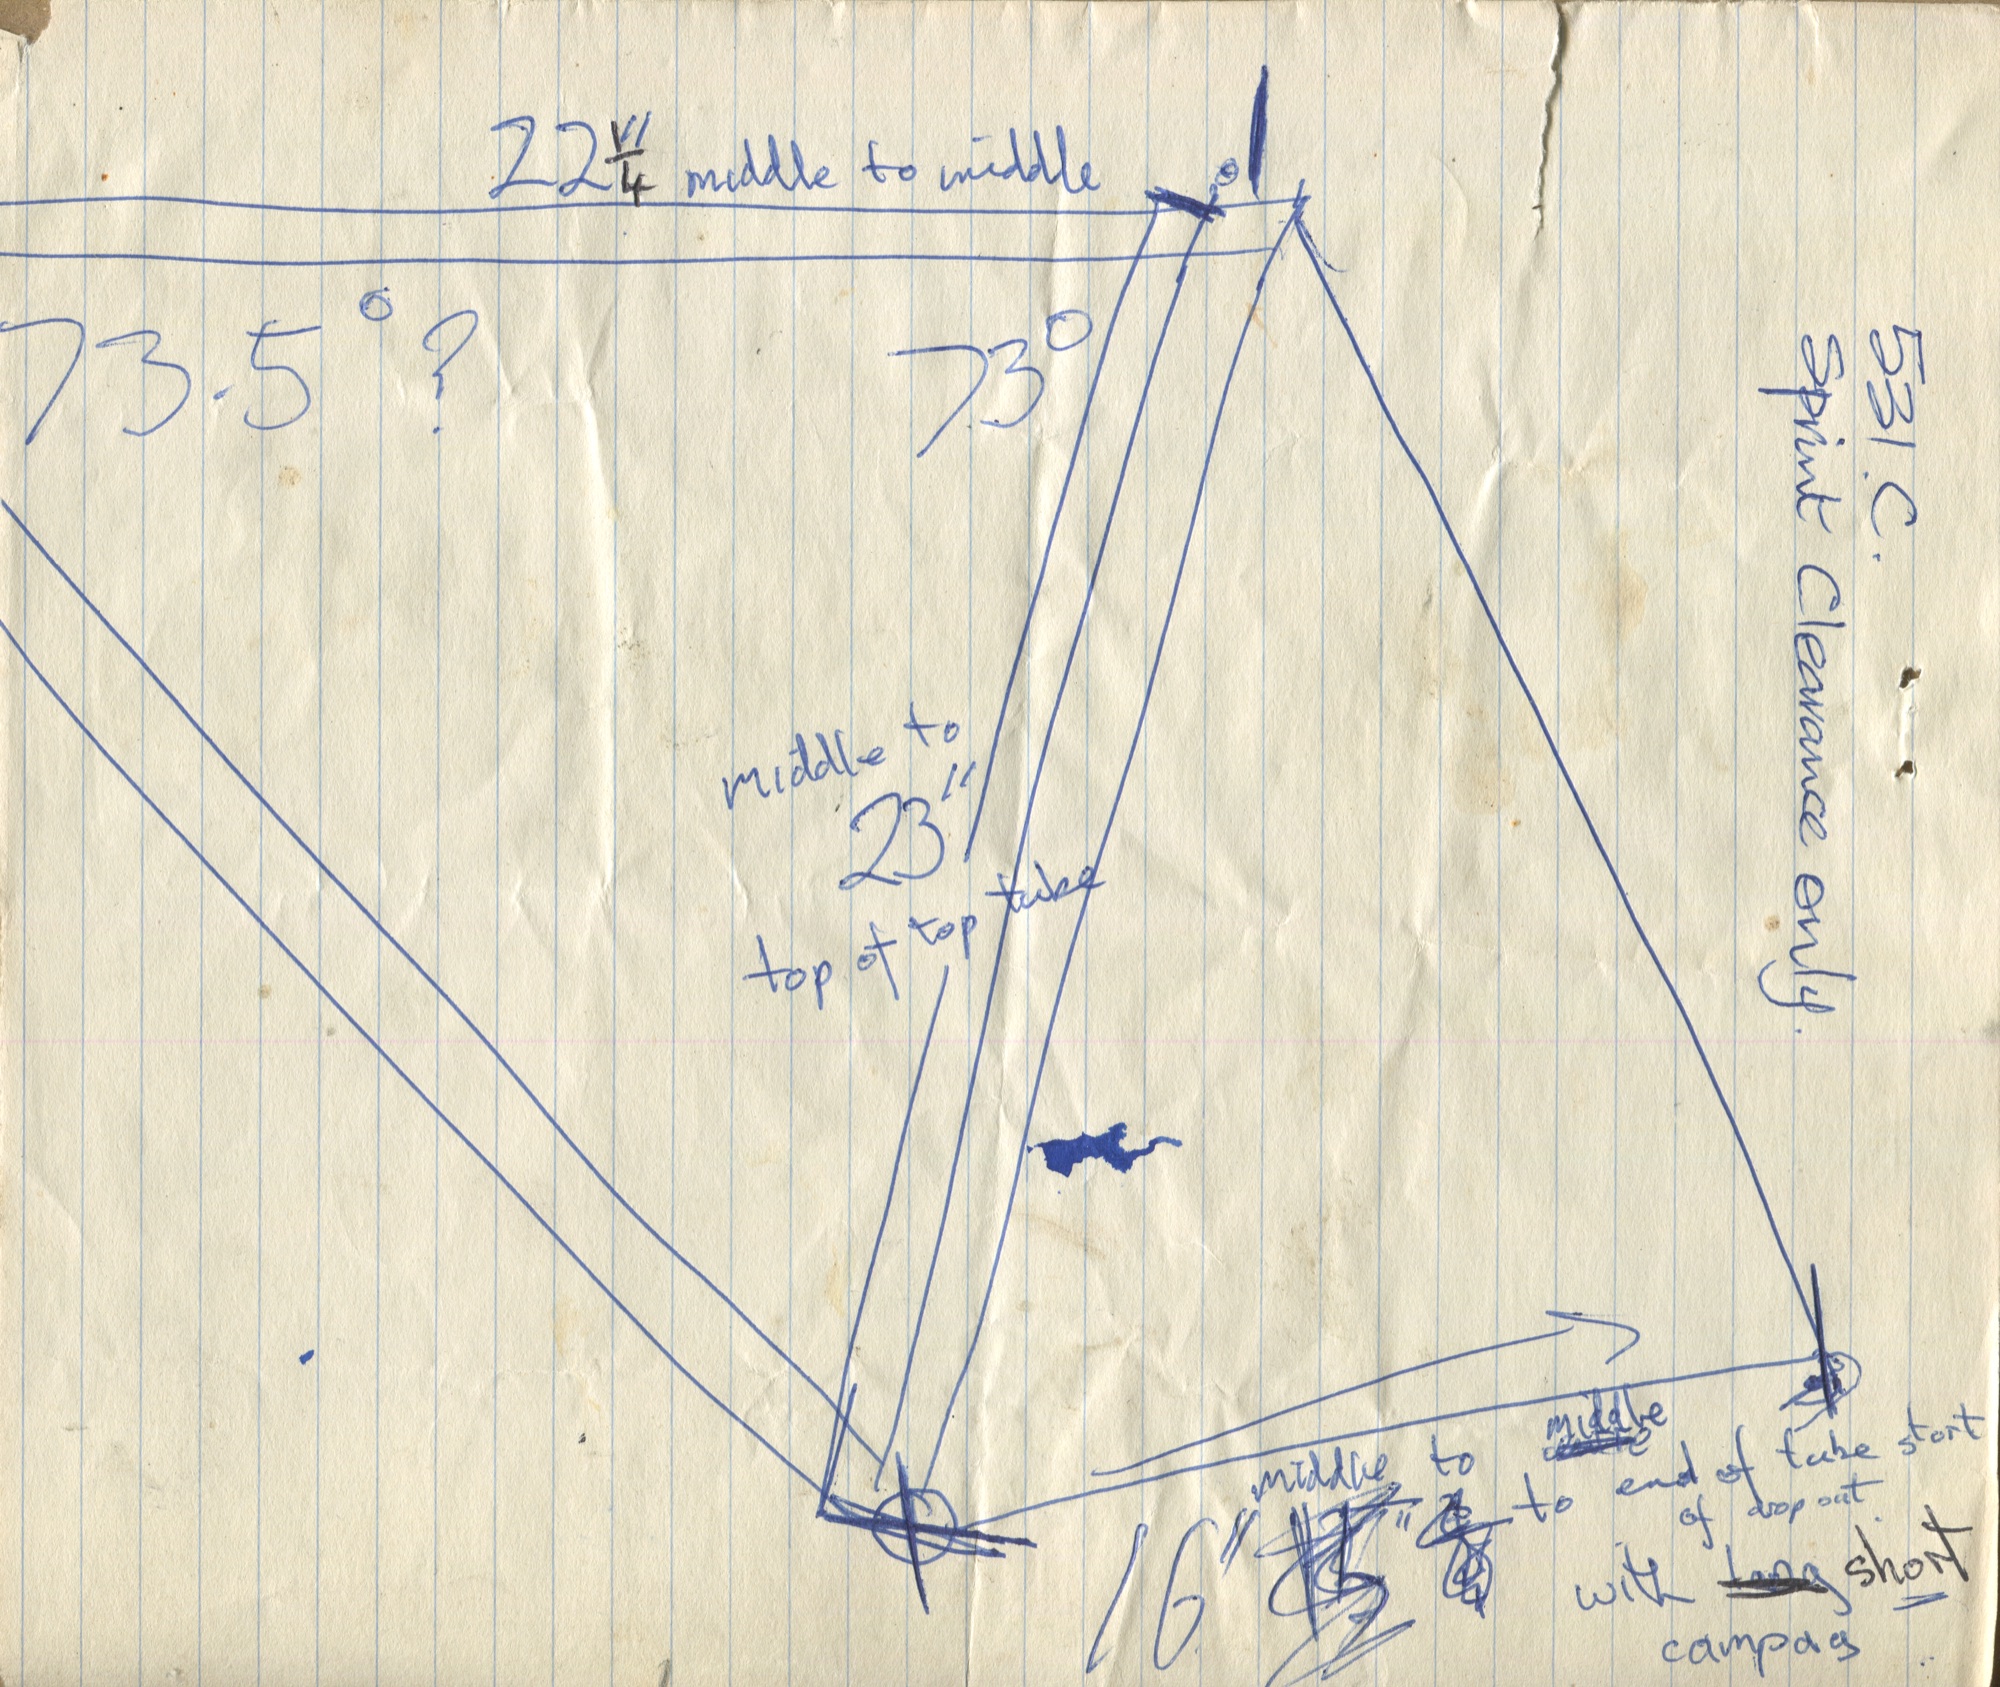 22 1/4" middle to middle
73.5° ?
73°
middle to
23"
top of top tube
531.C.
Sprint Clearance only.
middle to middle
16" to end of tube start
of drop out.
with short
campags